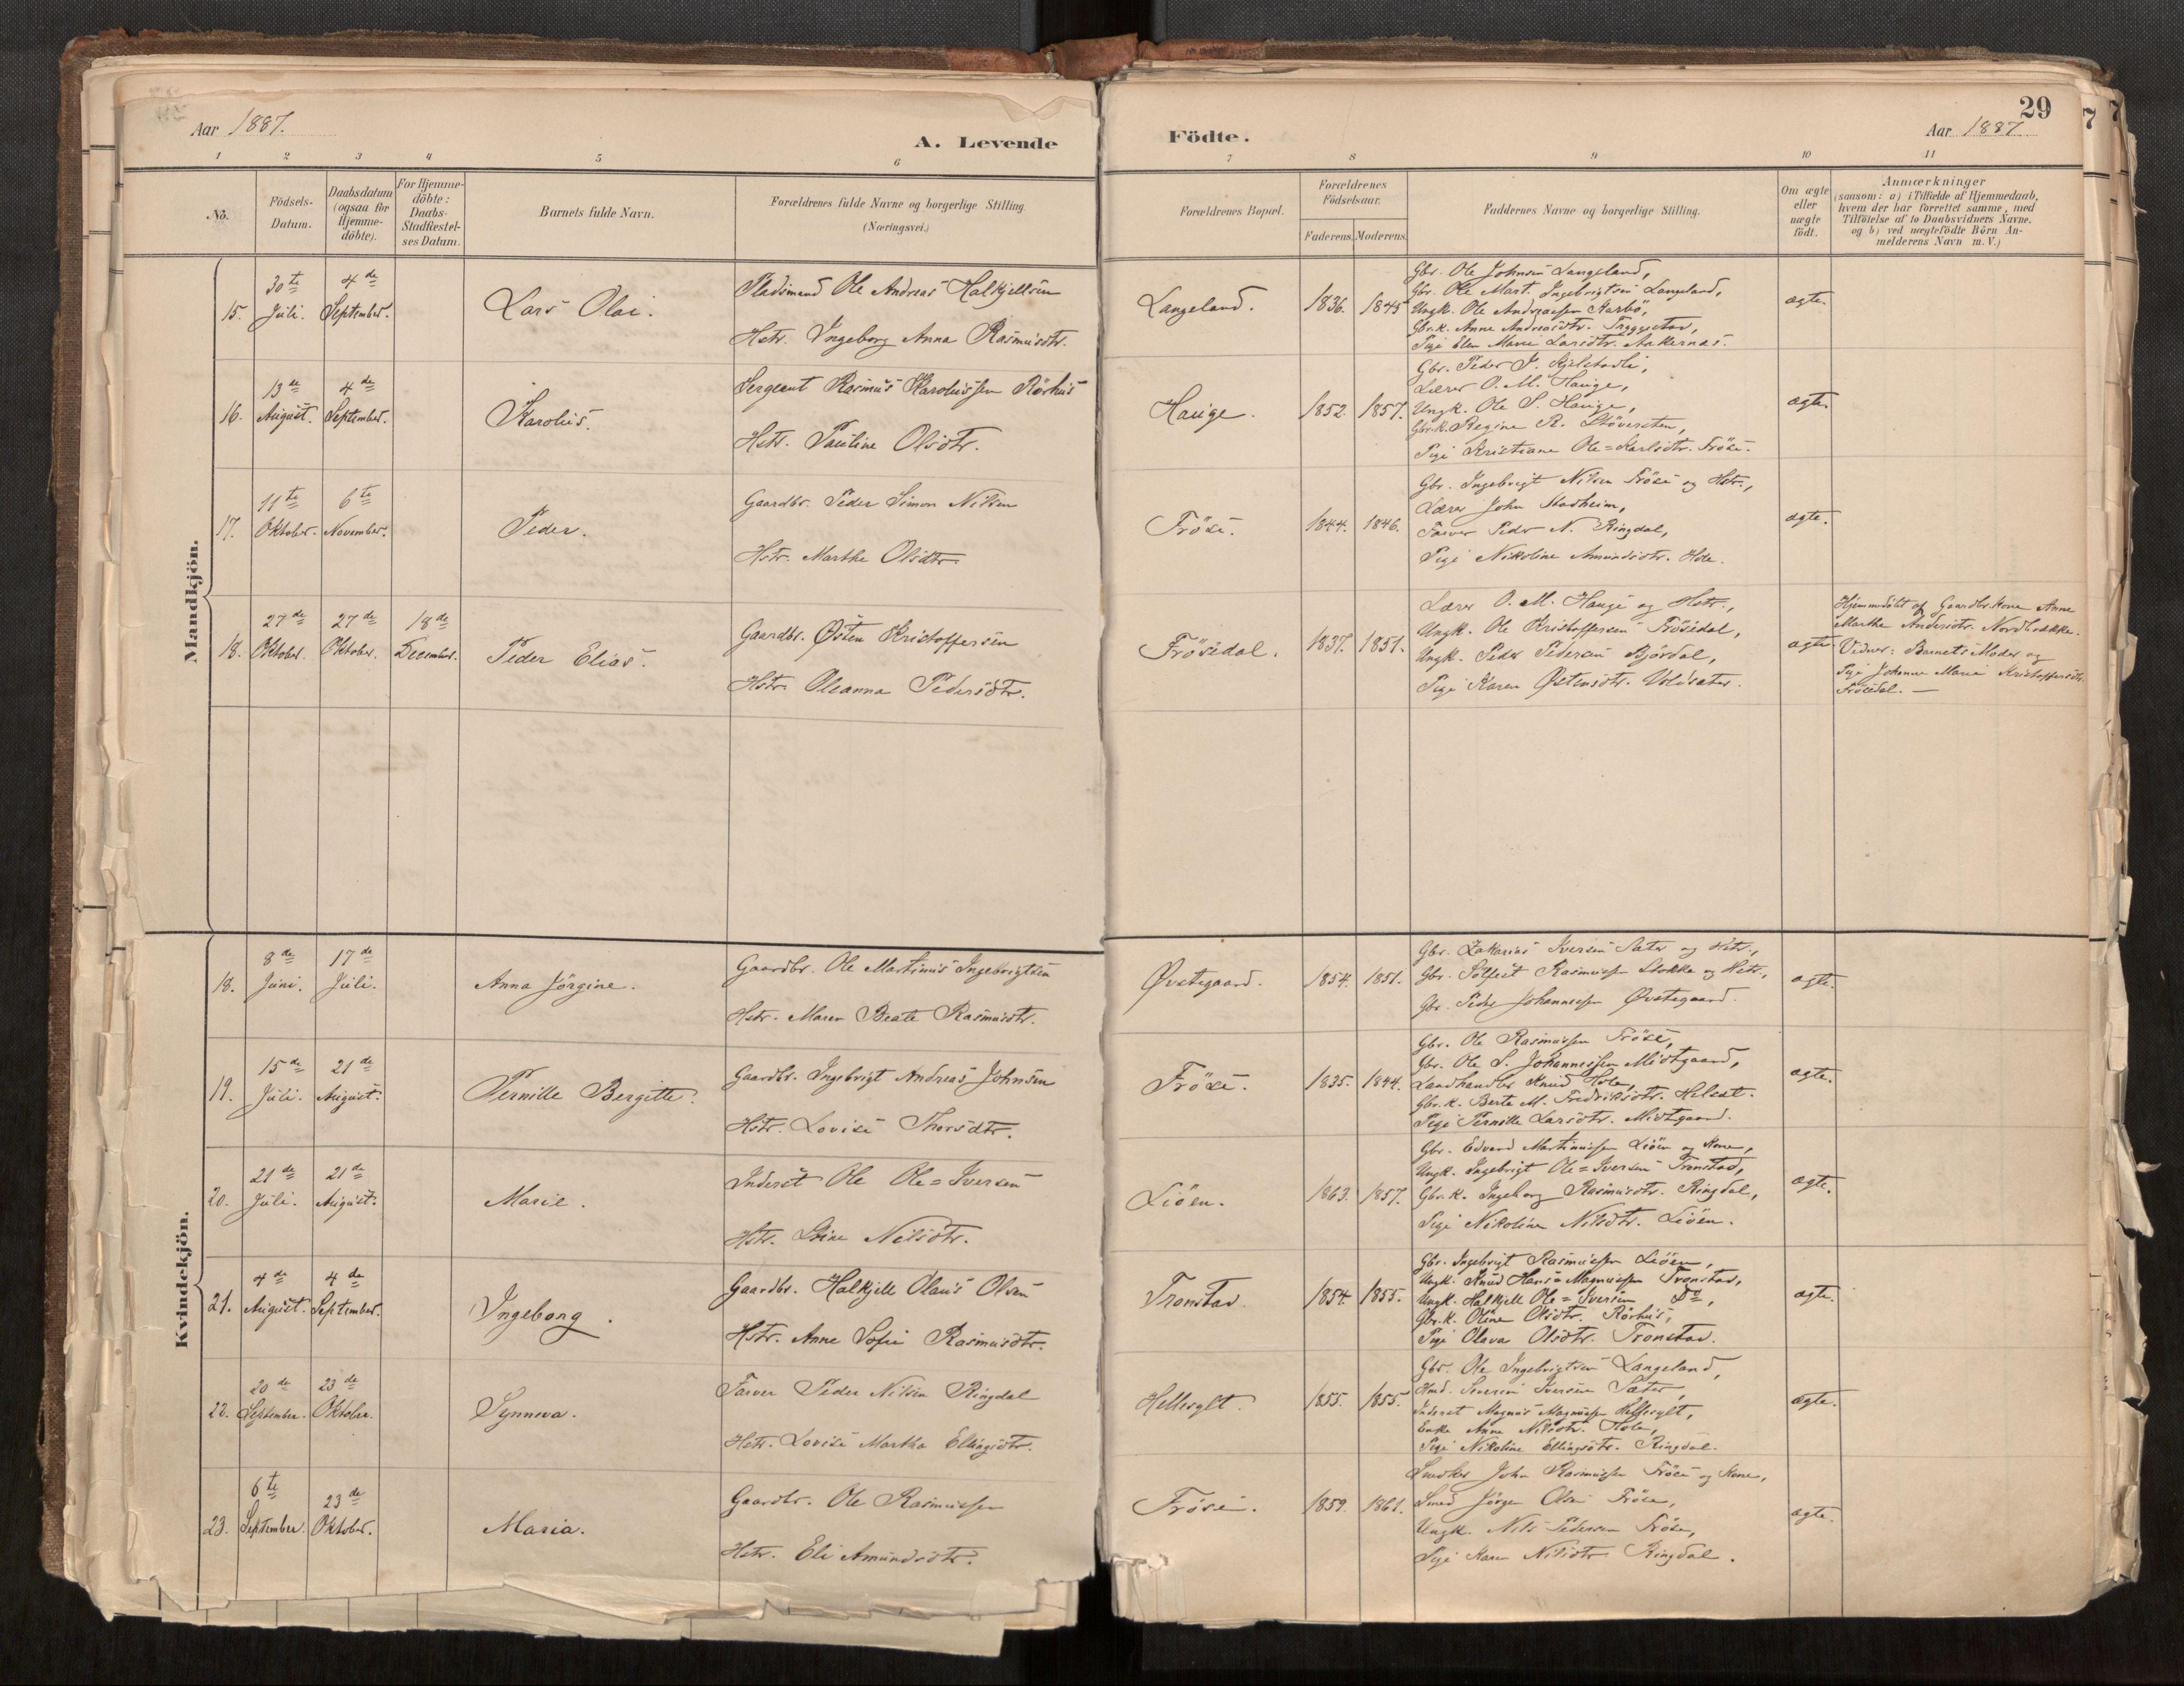 Aar 1887.
A. Levende
Födte.
29
Aar 1887
1 2 3 4 5 6 7 8 9 10 11
No.
Födsels-Datum.
Daabsdatum (ogsaa for Hjemme-döbte).
For Hjemme-döbte: Daabs-Stadfæstel-ses Datum.
Barnets fulde Navn.
Forældrenes fulde Navne og borgerlige Stilling. (Næringsvei.)
Forældrenes Bopæl.
Forældrenes Födselsaar.
Faderens. Moderens.
Faddernes Navne og borgerlige Stilling.
Om ægte eller uægte födt.
Anmærkninger
(saasom: a) i Tilfælde af Hjemmedaab,
hvem der har forrettet samme, med
Tilföielse af to Daabsvidners Navne.
og b) ved uægtefödte Börn An-
melderens Navn m. V.)
Mandkjön.
15. 30te Juli. 4de September. Lars Olai.
Pladsmand Ole Andreas Halkjellsen
Hstr. Ingeborg Anna Rasmusdtr.
Langeland. 1836. 1845
Gbr. Ole Johnsen Langeland,
Gbr. Ole Mart. Ingebrigtsen Langeland,
Ungk. Ole Andreassen Karbö,
Gbr.k. Anne Andreasdtr. Tryggestad,
Pige Elen Marie Larsdtr. Aakernæs.
ægte.
16. 13de August. 4de September. Karolus.
Sergeant Rasmus Karolussen Rörhus
Hstr. Pauline Olsdtr.
Hauge. 1852. 1857.
Gbr. Peder J. Kjelstadli,
Lærer O. M. Hauge,
Ungk. Ole S. Hauge,
Gbr.k. Regine R. Stöversten,
Pige Kristiane Ole=Karlsdtr. Fröse.
ægte.
17. 11te Oktober. 6te November. Peder.
Gaardbr. Peder Simon Nilsen
Hstr. Marthe Olsdtr.
Fröse. 1844. 1846.
Gbr. Ingebrigt Nilsen Fröse og Hstr.,
Lærer John Stadheim,
Farver Peder N. Ringdal,
Pige Nikoline Amundsdtr. Hole.
ægte.
18. 27de Oktober. 27de Oktober. 18de December. Peder Elias.
Gaardbr. Østen Kristoffersen
Hstr. Oleanna Pedersdtr.
Frösedal. 1837. 1851.
Lærer O. M. Hauge og Hstr.,
Ungk. Ole Kristoffersen Frösedal,
Ungk. Peder Pedersen Björdal,
Pige Karen Østensdtr. Voldsæter.
ægte
Hjemmedöbt af Gaardbr.kone Anne
Marthe Andersdtr. Nordbrække.
Vidner: Barnets Moder og
Pige Johanne Marie Kristoffersdtr.
Frösedal. —
Kvindekjön.
18. 8de Juni. 17de Juli. Anna Jörgine.
Gaardbr. Ole Martinus Ingebrigtsen
Hstr. Maren Beate Rasmusdtr.
Øvstegaard. 1854. 1851.
Gbr. Zakarias Iversen Sæter og Hstr.,
Gbr. Sölfest Rasmussen Stokke og Hstr.,
Gbr. Peder Johannessen Øvstegaard.
ægte.
19. 15de Juli. 21de August. Pernille Bergitte.
Gaardbr. Ingebrigt Andreas Johnsen
Hstr. Lovise Thorsdtr.
Fröse. 1835. 1844.
Gbr. Ole Rasmussen Fröse,
Gbr. Ole S. Johannessen Midtgaard,
Landhandler Knud Hole,
Gbr.k. Berte M. Fredriksdtr. Helset.
Pige Pernille Larsdtr. Midtgaard.
ægte.
20. 21de Juli. 21de August. Marie.
Inderst Ole Ole=Iversen
Hstr. Stine Nilsdtr.
Liöen. 1863. 1857.
Gbr. Edvard Martinussen Liöen og Kone,
Ungk. Ingebrigt Ole=Iversen Tronstad,
Gbr.k. Ingeborg Rasmusdtr. Ringdal,
Pige Nikoline Nilsdtr. Liöen.
ægte.
21. 4de August. 4de September. Ingeborg.
Gaardbr. Halkjell Olaus Olsen
Hstr. Anne Sofie Rasmusdtr.
Tronstad. 1854. 1855.
Gbr. Ingebrigt Rasmussen Liöen,
Ungk. Knud Hans=Magnussen Tronstad,
Ungk. Halkjell Ole=Iversen Do,
Gbr.k. Oline Olsdtr. Rörhus,
Pige Olava Olsdtr. Tronstad.
ægte.
22. 20de September. 23de Oktober. Synneva.
Farver Peder Nilsen Ringdal
Hstr. Lovise Martha Ellingsdtr.
Hellesylt. 1855. 1855.
Gbr. Ole Ingebrigtsen Langeland,
Hmd. Severin Iversen Sæter,
Inderst Magnus Magnussen Hellesylt,
Enke Anne Nilsdtr. Hole,
Pige Nikoline Ellingsdtr. Ringdal.
ægte.
23. 6te September. 23de Oktober. Maria.
Gaardbr. Ole Rasmussen
Hstr. Eli Amundsdtr.
Fröse. 1859. 1861.
Snedker John Rasmussen Fröse og Kone,
Smed Jörgen Olsen Fröse,
Ungk. Nils Pedersen Fröse,
Pige Karen Nilsdtr. Ringdal.
ægte.